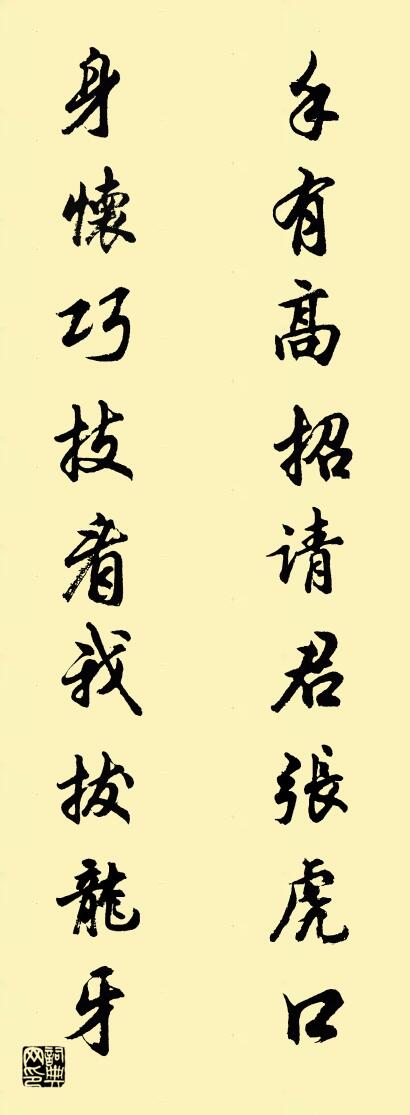 手有高招请君張虎口
身懷巧技看我拔龍牙
詞典网印